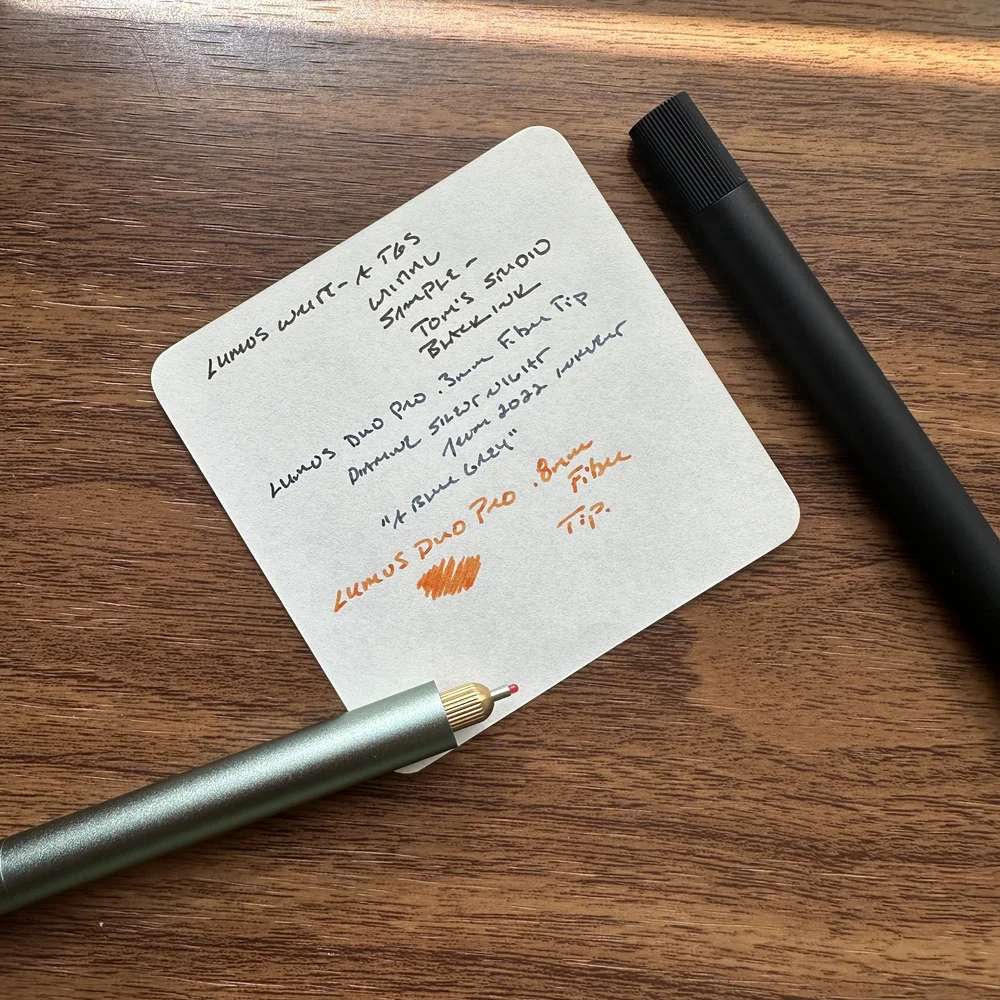 LUMOS WRITE - A TGS
WRITING
SAMPLE -
TOM'S STUDIO
BLACK INK
LUMOS DUO PRO .3mm Fiber Tip
DIAMINE SILENT NIGHT
FROM 2022 INKVENT
"A BLUE GREY"
LUMOS DUO PRO .8mm
Fiber
Tip.